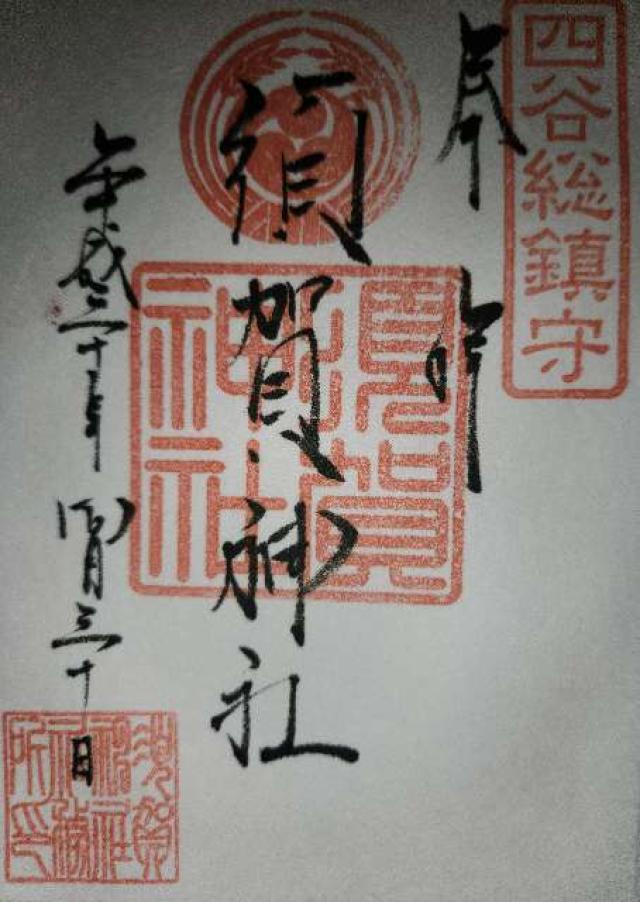 四谷総鎮守
奉拝
須賀神社
須賀
神社
平成三十一年四月三十日
須賀
神社
社務
所印